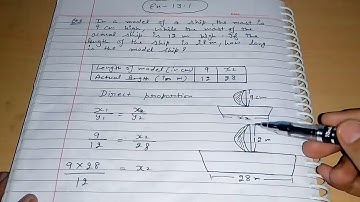 Ex - 13.1
In a model of a ship, the mast is
9 cm high, while the mast of the
actual ship is 12 m high. If the
length of the ship is 28 m, how long
is the model ship?
Length of model (in cm) 9 x2
Actual length (in m) 12 28
Direct proportion
x1/y1 = x2/y2
9 cm
9/12 = x2/28
x2
12 m
9 × 28/12 = x2
28 m